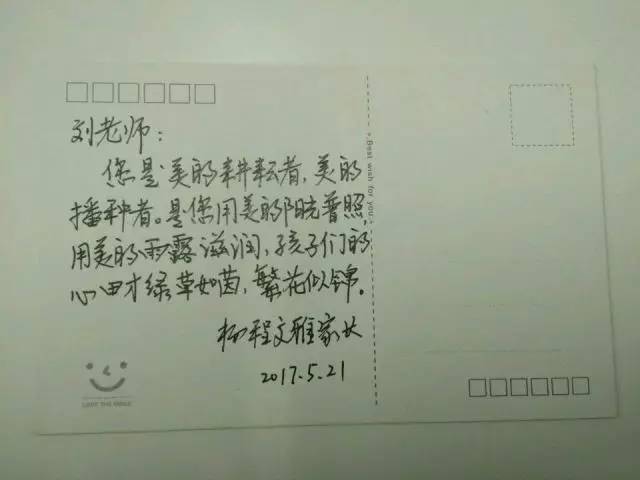 刘老师：
您是美的耕耘者，美的
播种者。是您用美的阳光普照，
用美的雨露滋润，孩子们的
心田才绿草如茵，繁花似锦。
杨程文雅家长
2017.5.21
Best wish for you